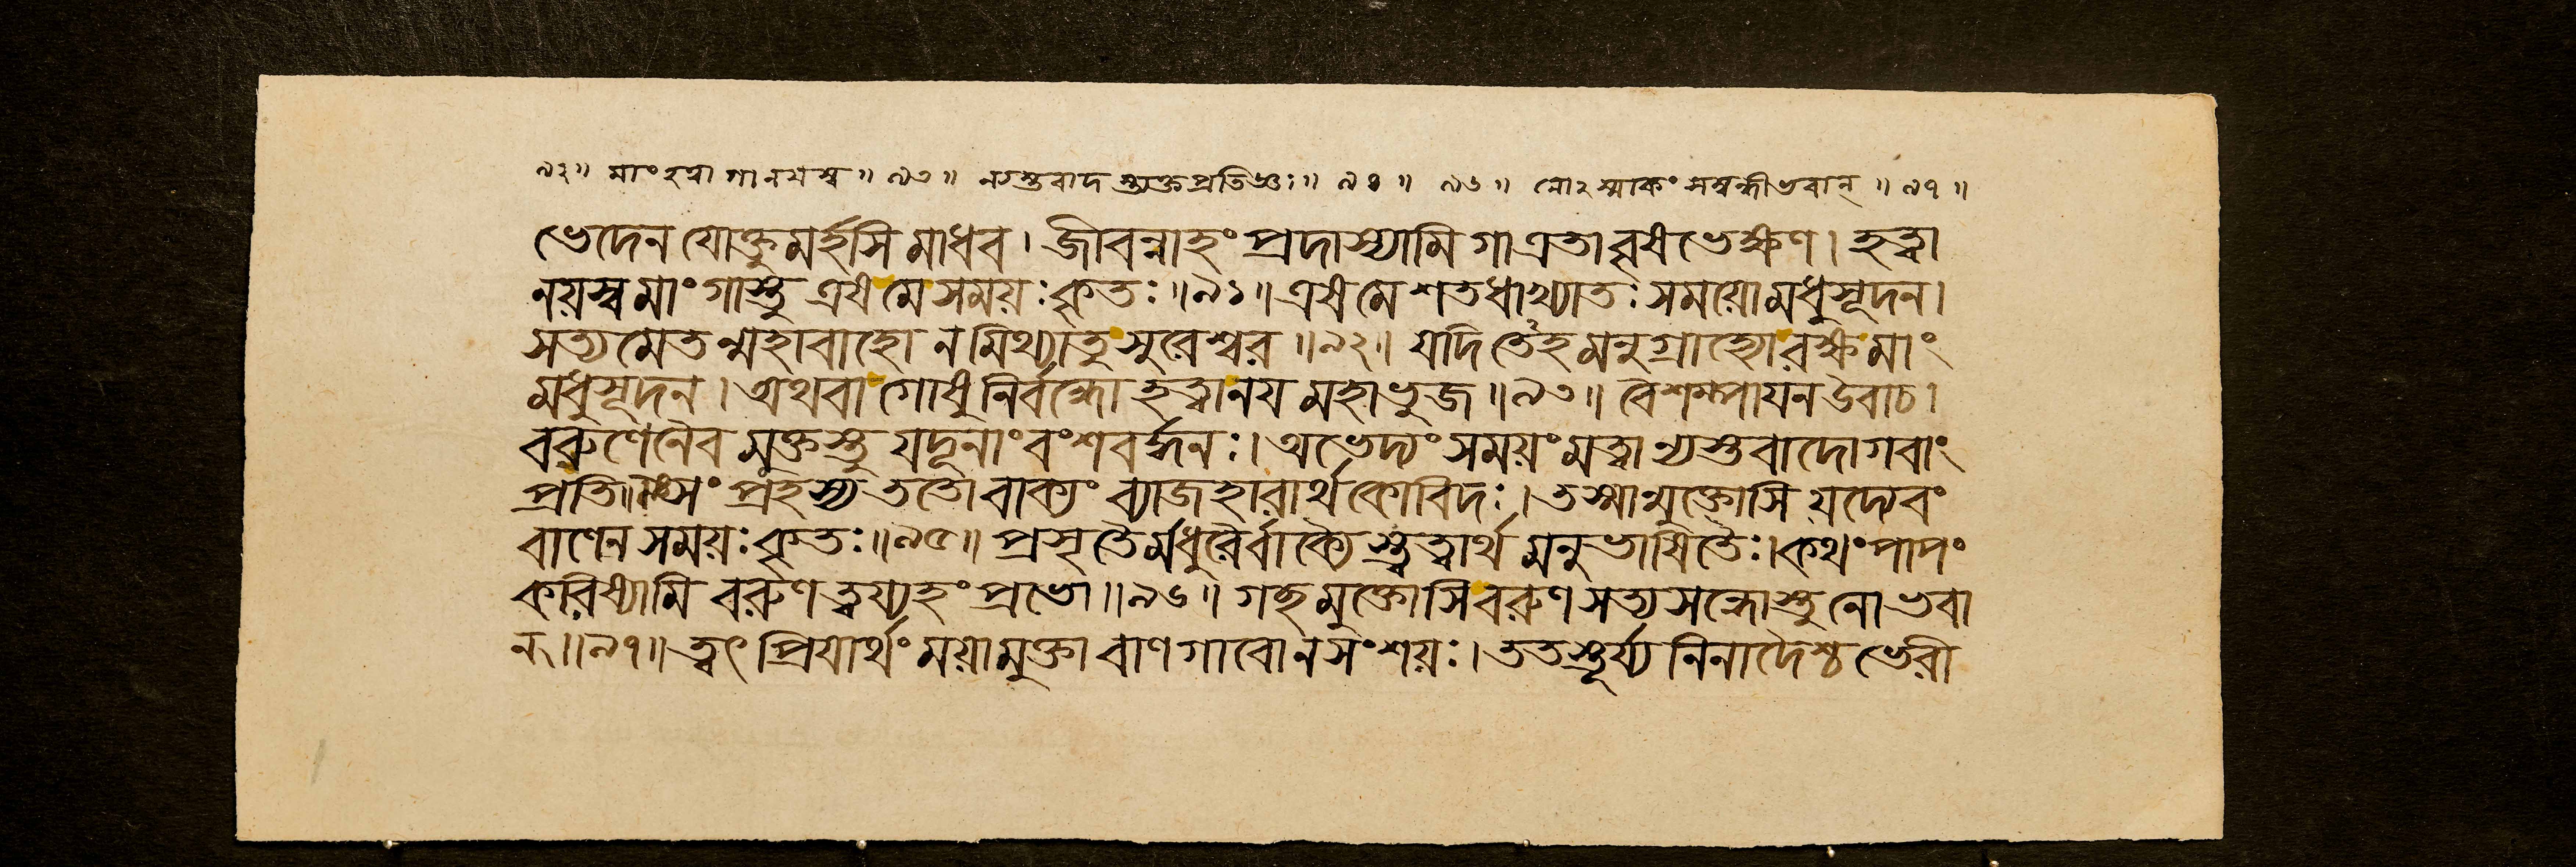 ৯২॥ মাংহত্বা গানযস্ব ॥ ৯৩ ॥ ন্যস্তবাদস্ত্যক্তপ্রতিজ্ঞঃ॥ ৯৪ ॥ ৯৬ ॥ নোঽস্মাকং সম্বন্ধীভবান্ ॥ ৯৭ ॥
ভেদেন যোক্তুমর্হসি মাধব। জীবন্নাহং প্রদাস্যামি গাএতাবৃষভেক্ষণ। হত্বা
নয়স্ব মাং গাস্তু এষ মে সময়ঃ কৃতঃ ॥৯১॥ এষ মে শতধাখ্যাতঃ সময়ো মধুসূদন।
সত্যমেতন্মহাবাহো ন মিথ্যাতু সুরেশ্বর ॥৯২॥ যদি তেঽহমনুগ্রাহ্যো রক্ষ মাং
মধুসূদন। অথবা গোষু নির্বন্ধো হত্বা নয মহাভুজ ॥৯৩॥ বৈশম্পাযন উবাচ।
বরুণেনৈব মুক্তস্তু যদূনাং বংশবর্দ্ধনঃ। অভেদ্যং সময়ং মত্বা ন্যস্তবাদো গবাং
প্রতি॥৯৪॥সং প্রহস্য ততো বাক্যং ব্যাজহারার্থকোবিদঃ। তস্মান্মুক্তোসি যদ্যেবং
বাণেন সময়ঃ কৃতঃ॥৯৫॥ প্রসৃতৈর্মধুরৈর্বাক্যৈস্তত্ত্বার্থ মনুভাষিতৈঃ। কথং পাপং
করিষ্যামি বরুণ ত্বয্যহং প্রভো ॥৯৬॥ গচ্ছ মুক্তোসি বরুণ সত্যসন্ধোস্তু নো ভবা
ন্॥৯৭॥ ত্বৎ প্রিযার্থং ময়া মুক্তা বাণগাবো ন সংশয়ঃ। ততস্তূর্য্য নিনাদৈশ্চ ভেরী